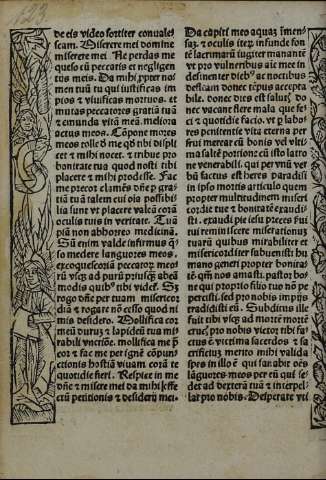 123
de eis video fortiter conuale⸗
scam. Miserere mei domine
miserere mei. Ne perdas me
queso cū peccatis et negligen
tijs meis. Da mihi ꝓpter no⸗
men tuū tu qui iustificas im
pios ⁊ viuificas mortuos. et
mutas peccatores gratiā tuā
ad emundā vitā meā meliora
actus meos. Cōpone mores
meos tolle a me qd tibi displi
cet ⁊ mihi nocet. ⁊ tribue pro
bonitate tua quod nosti tibi
placere ⁊ mihi prodesse. Fac
me precor clemēs dñe ꝑ gra⸗
tiā tuā talem cui oīa possibi⸗
lia sunt vt placere valeā corā
oculis tuis in veritate. Tuā
piā non abhorreo medicinā.
Sū enim valde infirmus
so medere languores meos.
excoquescoria peccator meo⸗
rū vsq ad purū
modis quibꝰ tibi videt. Sȝ
rogo dñe per tuam misericor
diā ⁊ rogare nō cesso quod ni
mis desidero. Mollifica cor
meū durū ⁊ lapideū tua mi⸗
rabili vnctiōe. mollifica me
cor ⁊ fac me per ignē cōpun⸗
ctionis hostiā viuam corā te
quotidie fieri. Respice in me
dñe ⁊ miserere mei da mihi
ctū petitionis ⁊ desiderij mei.
Da capiti meo aquaȝ īmen⸗
saȝ. ⁊ oculis meis infunde fon
tē lacrimarū iugiter manantē
vt pro vulneribus aīe mee in
desinenter diebꝰ ac noctibus
defleam donec tēpus accepta
bile. donec dies est salutꝭ do
nec vacant flere mala que fe⸗
ci ⁊ quotidie facio. vt ꝑ labo⸗
res penitentie vita eterna per
frui merear cū bonis vel vlti⸗
ma saltē portione cū isto latro
ne venerabili. qui per vnū ver
bū factus est heres paradisi
in ipso mortis articulo quem
propter multitudinem miseri
cordie tue ⁊ bonitatē exaudi⸗
sti. exaudi pie iesu preces fui
tui reminiscere miserationuȝ
tuarū quibus mirabiliter et
misericorditer subuenisti hu
mano generi propter bonita⸗
tē qm̄ nos amasti. pastor bo⸗
ne qui proprio filio tuo nō pe
percisti. sed pro nobis impijs
tradidisti eū. Subditus ille
fuit tibi vsq ad mortē mortē
crucꝭ pro nobis victor tibi fa⸗
ctus ⁊ victima sacerdos ⁊ sa⸗
crificiuȝ merito mihi valida
spes in illo ē qui sanabit oēs
lāguores meos per eū qui se⸗
det ad dexterā tuā ⁊ interpel⸗
lat pro nobis. Desperate vti